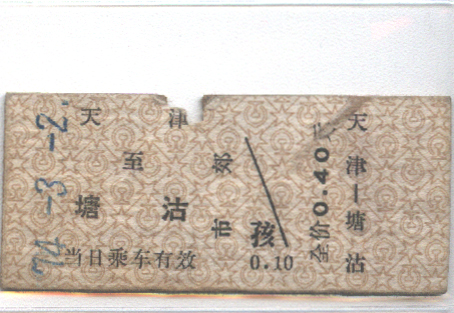 74-3-2.
天津
至
塘沽
当日乘车有效
市郊
孩
0.10
全价0.40元
天津—塘沽